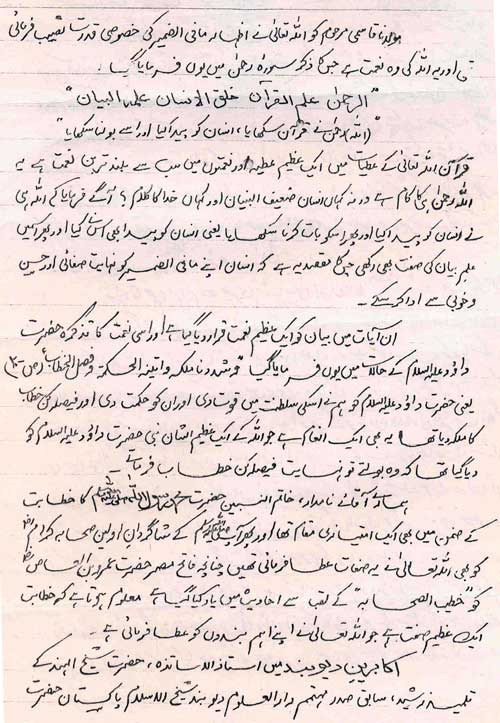 مولانا قاسمی مرحوم کو اللہ تعالیٰ نے اظہار مافی الضمیر کی خصوصی قدرت نصیب فرمائی
تھی اور یہ اللہ کی وہ نعمت ہے جس کا ذکر سورۂ رحمٰن میں یوں فرمایا گیا۔
"الرحمٰن علم القرآن خلق الانسان علمہ البیان"
"(اللہ) رحمٰن نے قرآن سکھایا، انسان کو پیدا کیا اور اسے بولنا سکھایا"
قرآن اللہ تعالیٰ کے عطیات میں ایک عظیم عطیہ اور نعمتوں میں سب سے بلند ترین نعمت ہے یہ
اللہ رحمٰن ہی کا کام ہے ورنہ کہاں انسان ضعیف البنیان اور کہاں خدا کا کلام؟ آگے فرمایا کہ اللہ ہی
نے انسان کو پیدا کیا اور پھر اسکو بات کرنا سکھلایا یعنی انسان کو پیدا بھی اس نے کیا اور پھر اسمیں
علم بیان کی صفت بھی رکھی جس کا مقصد یہ ہے کہ انسان اپنے مافی الضمیر کو نہایت صفائی اور حسین
و خوبی سے ادا کر سکے۔
ان آیات میں بیان کو ایک عظیم نعمت قرار دیا گیا ہے اور اسی نعمت کا تذکرہ حضرت
داؤد علیہ السلام کے حالات میں یوں فرمایا گیا "وشددنا ملکہ واتینہ الحکمۃ وفصل الخطاب" (ص۔۲۰)
یعنی حضرت داؤد علیہ السلام کو ہم نے اسکی سلطنت میں قوت دی اور ان کو حکمت دی اور فیصلہ کن خطاب
کا ملکہ دیا تھا یہ بھی ایک انعام ہے جو اللہ کے ایک عظیم الشان نبی حضرت داؤد علیہ السلام کو
دیا گیا تھا کہ وہ بولتے تو نہایت فیصلہ کن خطاب فرماتے۔
ہمارے آقائے نامدار، خاتم النبیین حضرت محمد رسول اللہ صلی اللہ علیہ وسلم کا خطابت
کے ضمن میں بھی ایک امتیازی مقام تھا اور پھر آپ صلی اللہ علیہ وسلم کے شاگردان اولین صحابہ کرامؓ
کو بھی اللہ تعالیٰ نے یہ صفات عطا فرمائی تھیں چنانچہ فاتح مصر حضرت عمرو بن العاصؓ
کو "خطیب الصحابہ" کے لقب سے احادیث میں یاد کیا گیا ہے معلوم ہوتا ہے کہ خطابت
ایک عظیم صفت ہے جو اللہ تعالیٰ نے اپنے اہم بندوں کو عطا فرمائی ہے۔
اکابرین دیوبند میں استاذ الاساتذہ، حضرت شیخ الہند کے
تلمیذ رشید، سابق صدر مہتمم دارالعلوم دیوبند شیخ الاسلام پاکستان حضرت